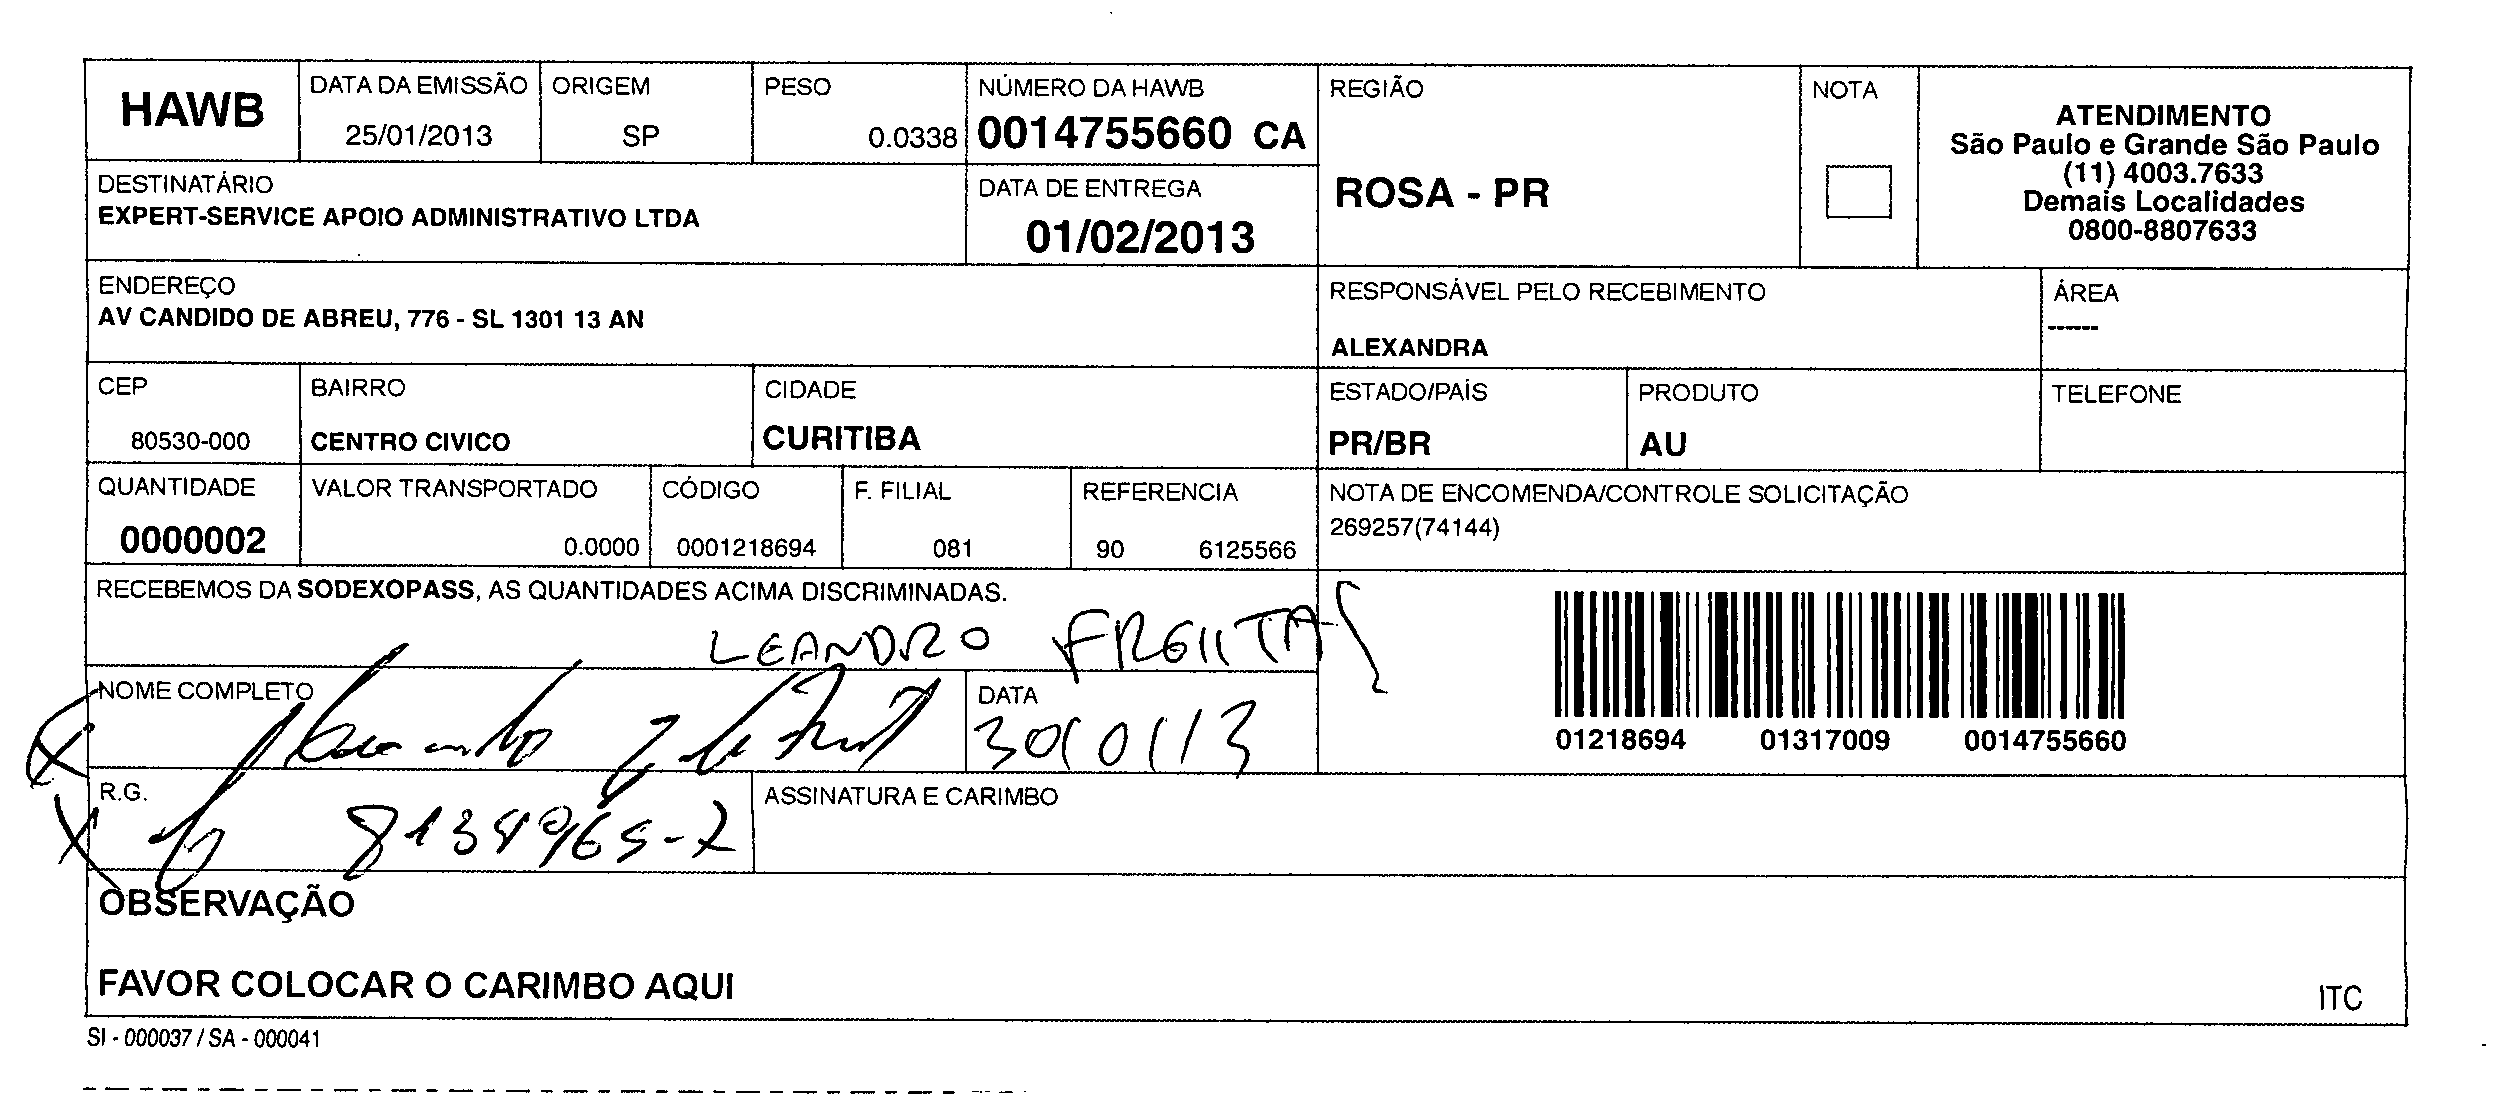 HAWB
DATA DA EMISSÃO
25/01/2013
ORIGEM
SP
PESO
0.0338
NÚMERO DA HAWB
0014755660 CA
REGIÃO
ROSA - PR
NOTA
ATENDIMENTO
São Paulo e Grande São Paulo
(11) 4003.7633
Demais Localidades
0800-8807633
DESTINATÁRIO
EXPERT-SERVICE APOIO ADMINISTRATIVO LTDA
DATA DE ENTREGA
01/02/2013
ENDEREÇO
AV CANDIDO DE ABREU, 776 - SL 1301 13 AN
RESPONSÁVEL PELO RECEBIMENTO
ALEXANDRA
ÁREA
------
CEP
80530-000
BAIRRO
CENTRO CIVICO
CIDADE
CURITIBA
ESTADO/PAÍS
PR/BR
PRODUTO
AU
TELEFONE
QUANTIDADE
0000002
VALOR TRANSPORTADO
0.0000
CÓDIGO
0001218694
F. FILIAL
081
REFERENCIA
90 6125566
NOTA DE ENCOMENDA/CONTROLE SOLICITAÇÃO
269257(74144)
RECEBEMOS DA SODEXOPASS, AS QUANTIDADES ACIMA DISCRIMINADAS.
LEANDRO FREIITAS
NOME COMPLETO
DATA
30/01/13
01218694 01317009 0014755660
R.G.
ASSINATURA E CARIMBO
OBSERVAÇÃO
FAVOR COLOCAR O CARIMBO AQUI
ITC
SI - 000037 / SA - 000041